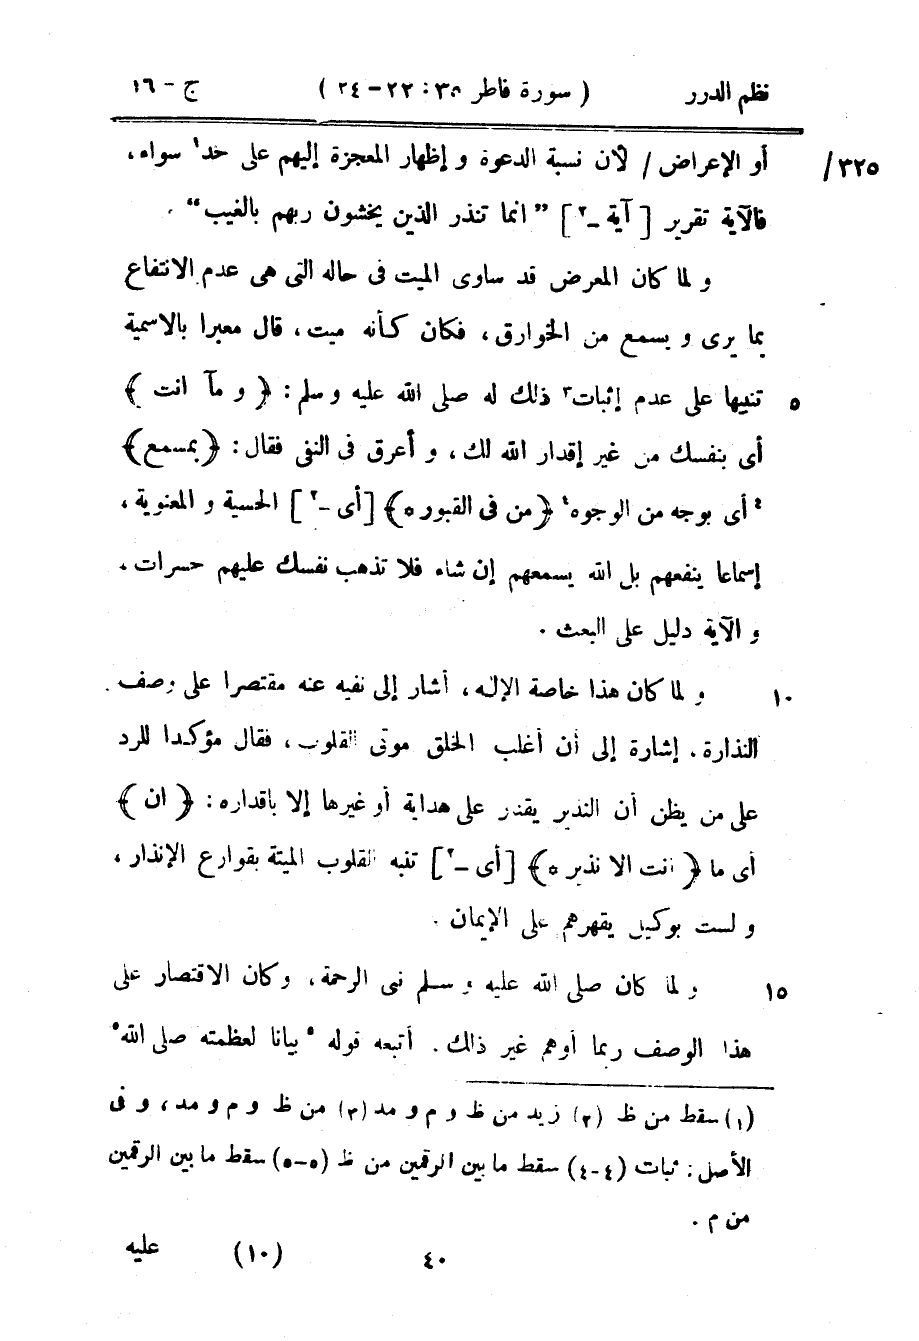 نظم الدرر ( سورة فاطر ٣٥ : ٢٢ – ٢٤ ) ج – ١٦
أو الإعراض / لأن نسبة الدعوة و إظهار المعجزة إليهم على حد١ سواء، /٣٢٥
فالآية تقرير [ آية –٢ ] ” انما تنذر الذين يخشون ربهم بالغيب“ .
و لما كان المعرض قد ساوى الميت فى حاله التى هى عدم الانتفاع
بما يرى و يسمع من الخوارق، فكان كأنه ميت، قال معبرا بالاسمية
تنبيها على عدم إثبات٣ ذلك له صلى الله عليه و سلم : ﴿ و مآ انت ﴾ ٥
أى بنفسك من غير إقدار الله لك، و أعرق فى النفى فقال : ﴿ بمسمع ﴾
٤ أى بوجه من الوجوه٤ ﴿ من فى القبور ه ﴾ [ أى –٢ ] الحسية و المعنوية ،
إسماعا ينفعهم بل الله يسمعهم إن شاء فلا تذهب نفسك عليهم حسرات ،
و الآية دليل على البعث .
و لما كان هذا خاصة الإله، أشار إلى نفيه عنه مقتصرا على وصف ١٠
النذارة . إشارة إلى أن أغلب الخلق موتى القلوب ، فقال مؤكدا للرد
على من يظن أن النذير يقدر على هداية أو غيرها إلا باقداره : ﴿ ان ﴾
أى ما ﴿ انت الا نذير ه ﴾ [ أى –٢ ] تنبه القلوب الميتة بقوارع الإنذار ،
و لست بوكيل يقهرهم على الإيمان .
و لما كان صلى الله عليه و سلم نبى الرحمة ، وكان الاقتصار على ١٥
هذا الوصف ربما أوهم غير ذلك . أتبعه قوله ٥ بيانا لعظمته صلى الله٥
(١) سقط من ظ (٢) زيد من ظ و م و مد (٣) من ظ و م و مد ، و فى
الأصل : ثبات (٤-٤) سقط ما بين الرقمين من ظ (٥-٥) سقط ما بين الرقمين
من م .
٤٠ (١٠) عليه